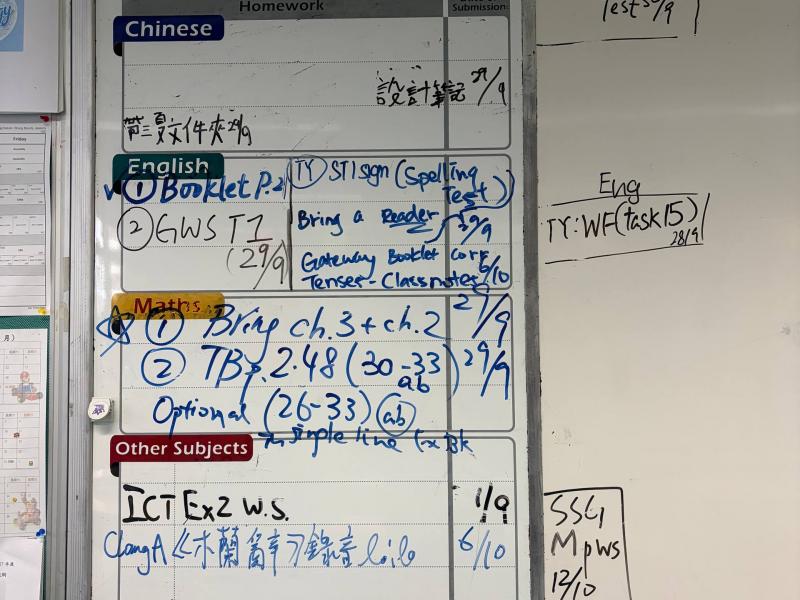 Homework
Submission
Chinese
設計筆記 29/9
帶三頁文件夾 29/9
English
① Booklet P.2
② GWS T1
(29/9)
TY STIsign (Spelling
Test)
Bring a Reader 29/9
Gateway Booklet Corr
Tenses - Classnotes 6/10
Maths
☆ ① Bring ch.3 + ch.2 29/9
② TB p.2.48 (30-33) 29/9
ab
Optional (26-33) ab
simple line
Other Subjects
ICT Ex2 W.S.
ClangA 《木蘭辭》錄音 6/10
Eng
TY: WF (task 15)
28/9
SSG
M pws
12/10
Friday